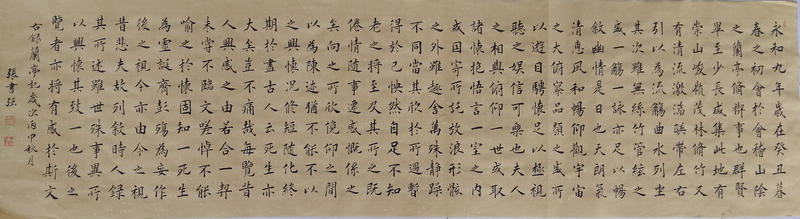 永和九年歲在癸丑暮
春之初會於會稽山陰
之蘭亭脩禊事也群賢
畢至少長咸集此地有
崇山峻嶺茂林脩竹又
有清流激湍暎帶左右
引以為流觴曲水列坐
其次雖無絲竹管絃之
盛一觴一詠亦足以暢
敘幽情是日也天朗氣
清惠風和暢仰觀宇宙
之大俯察品類之盛所
以遊目騁懷足以極視
聽之娛信可樂也夫人
之相與俯仰一世或取
諸懷抱悟言一室之內
或因寄所託放浪形骸
之外雖趣舍萬殊靜躁
不同當其欣於所遇暫
得於己怏然自足不知
老之將至及其所之既
倦情隨事遷感慨係之
矣向之所欣俛仰之間
以為陳迹猶不能不以
之興懷況修短隨化終
期於盡古人云死生亦
大矣豈不痛哉每覽昔
人興感之由若合一契
未嘗不臨文嗟悼不能
喻之於懷固知一死生
為虛誕齊彭殤為妄作
後之視今亦由今之視
昔悲夫故列敘時人錄
其所述雖世殊事異所
以興懷其致一也後之
覽者亦將有感於斯文
古錄蘭亭記歲次丙申秋月
張書